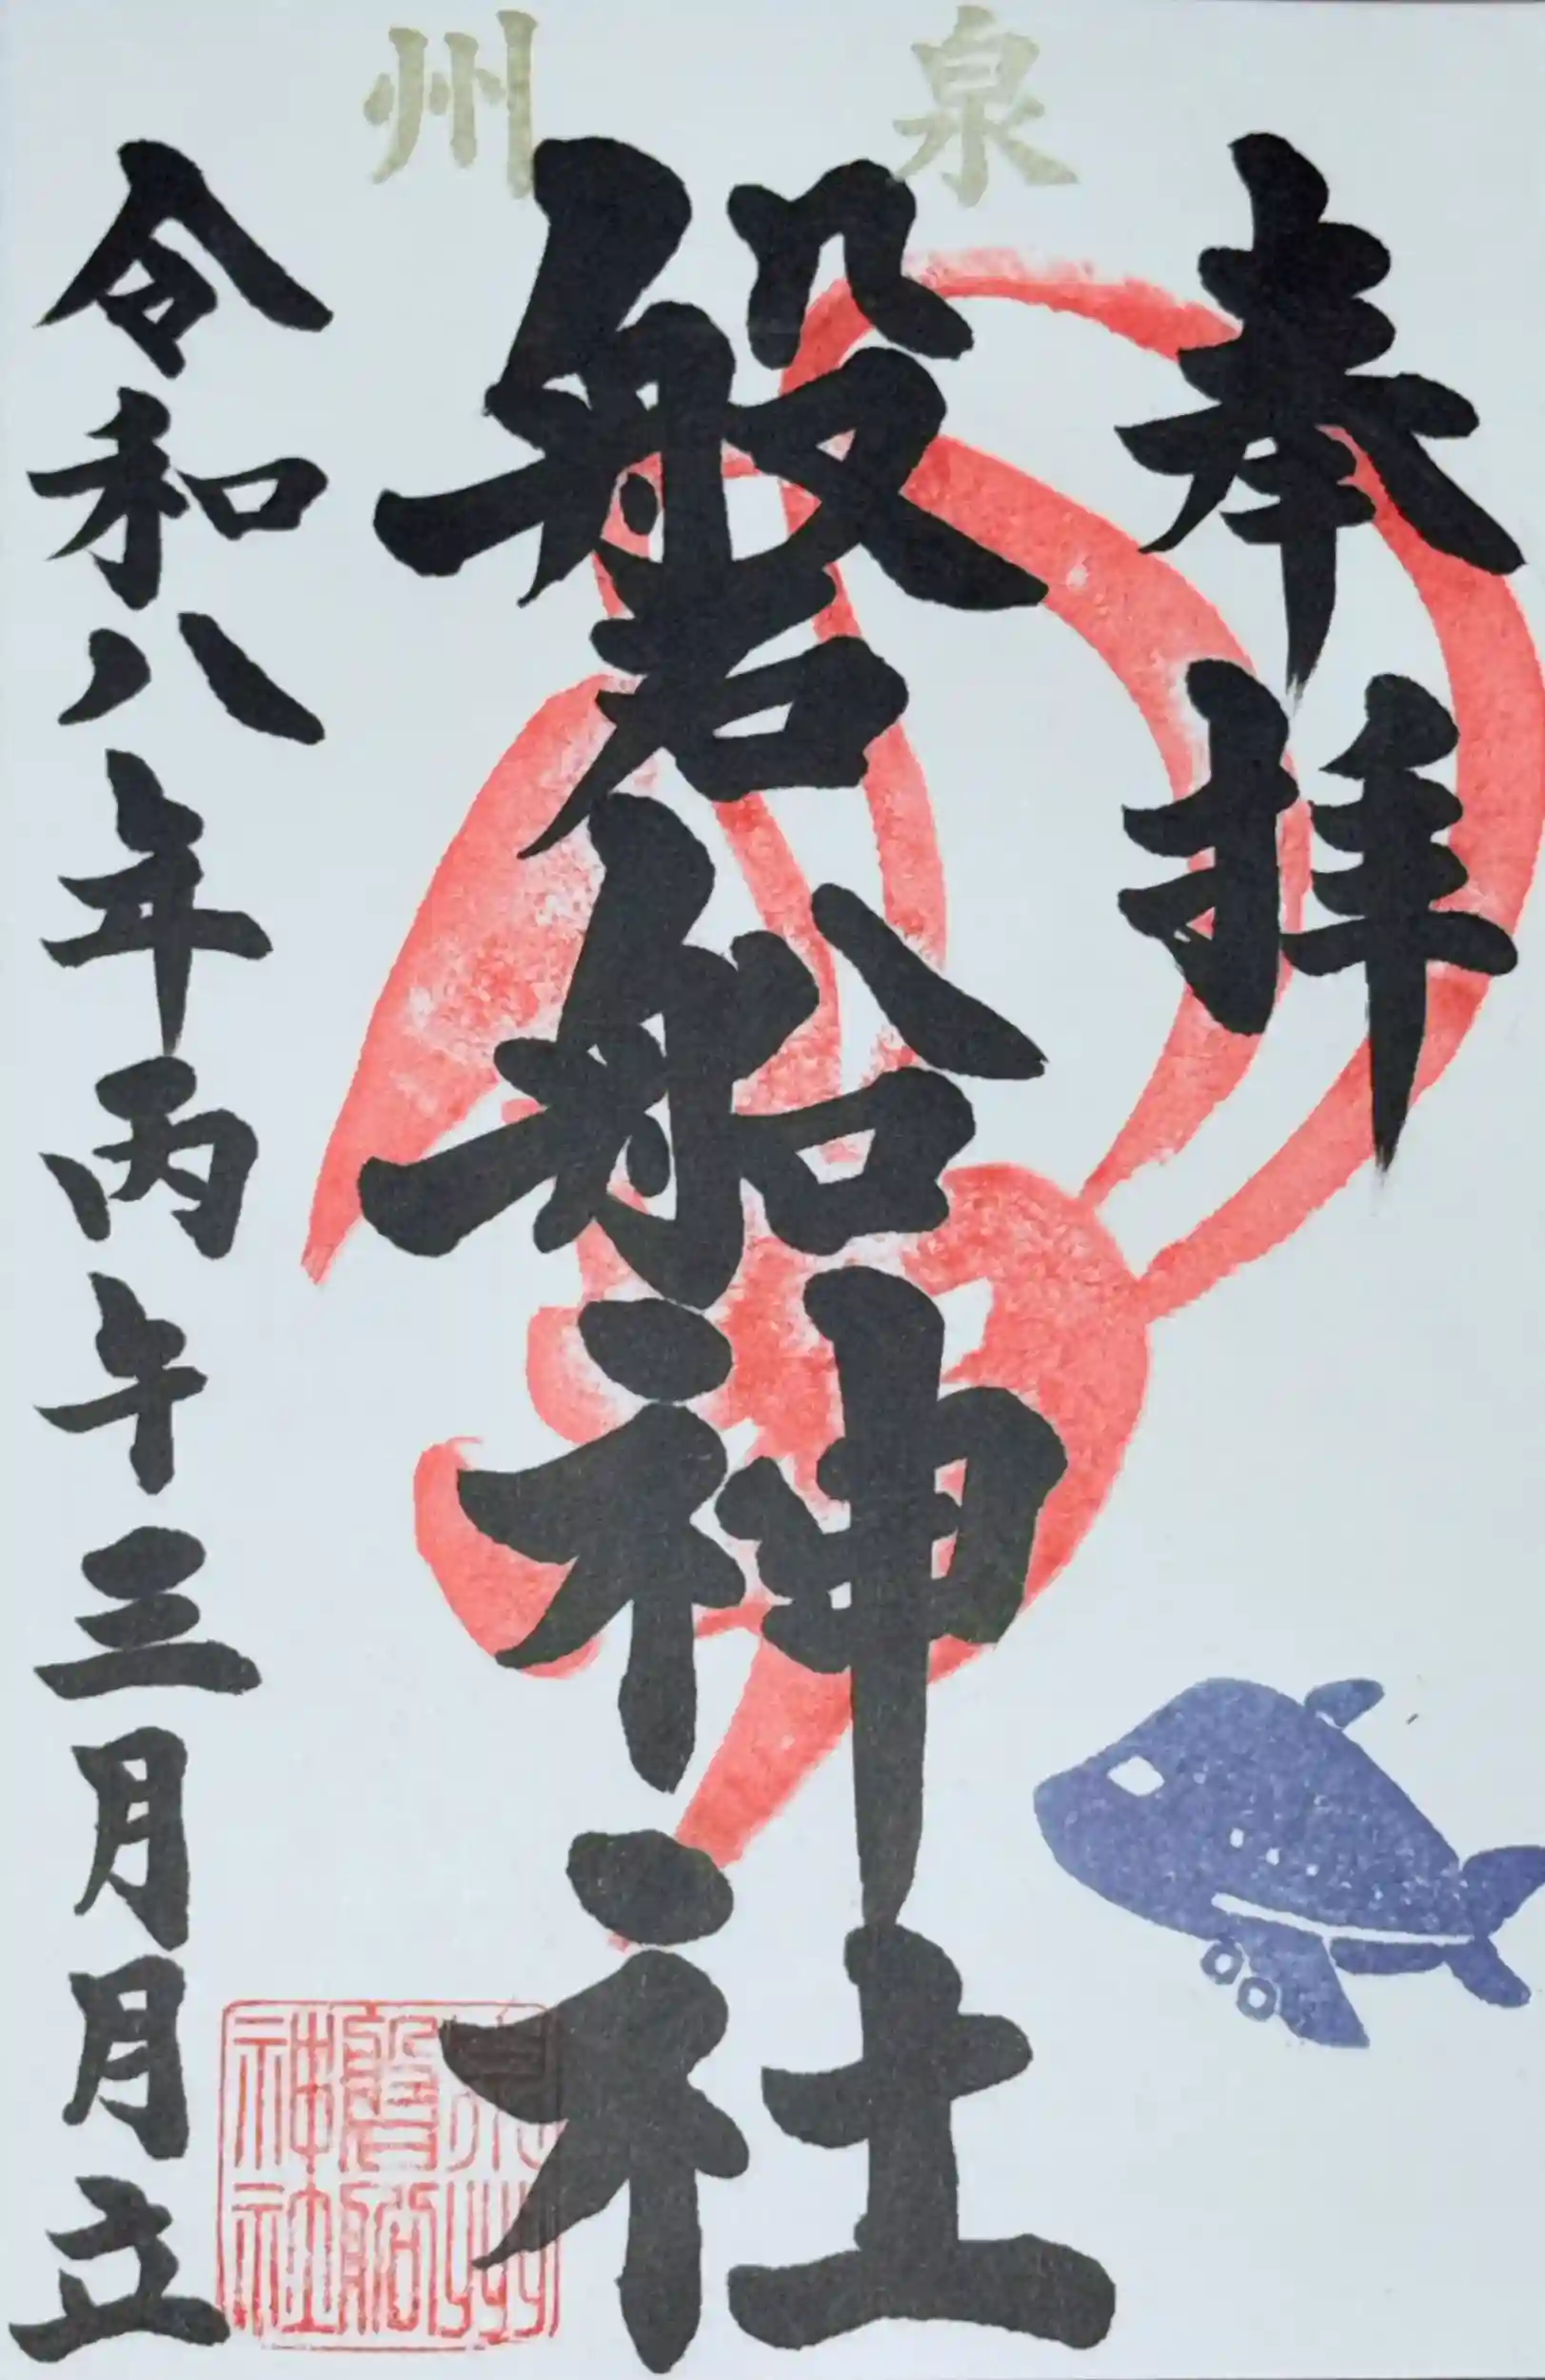 泉州
奉拝
磐船神社
令和八年丙午三月月立
泉州磐船神社